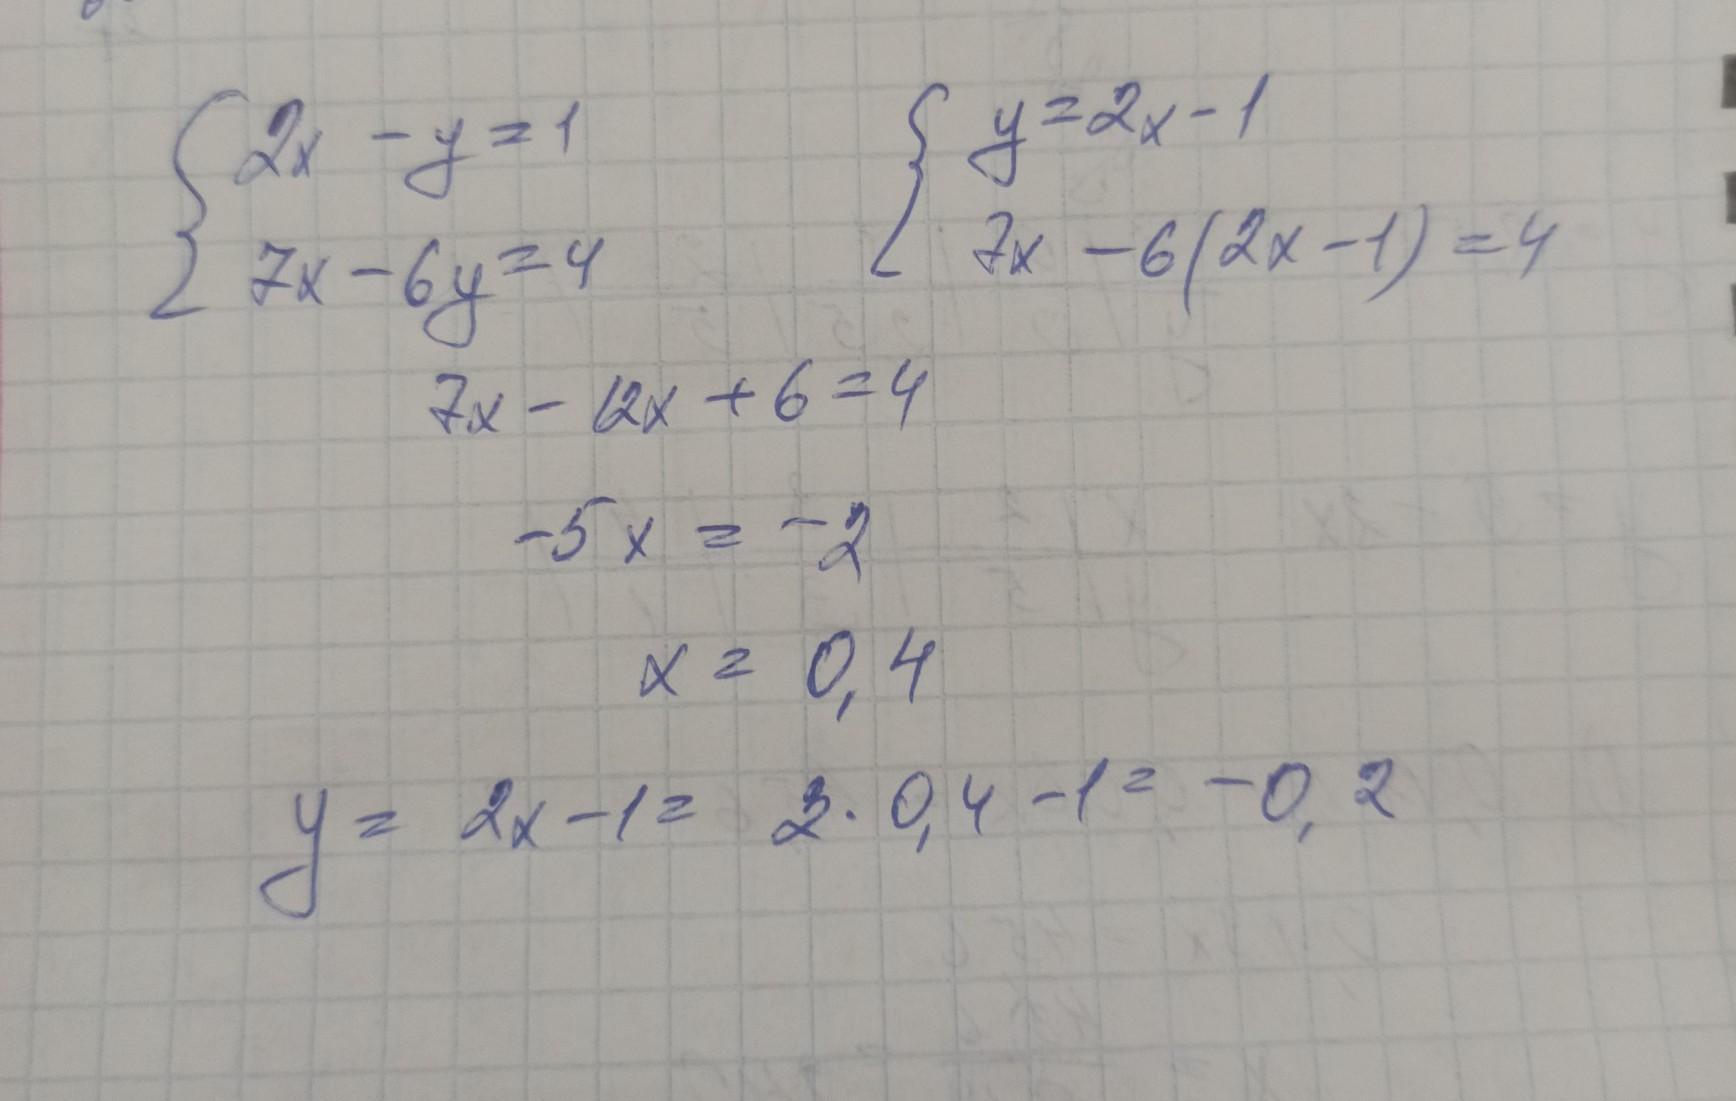 { 2x - y = 1
7x - 6y = 4
{ y = 2x - 1
7x - 6(2x - 1) = 4
7x - 12x + 6 = 4
-5x = -2
x = 0,4
y = 2x - 1 = 2 · 0,4 - 1 = -0,2